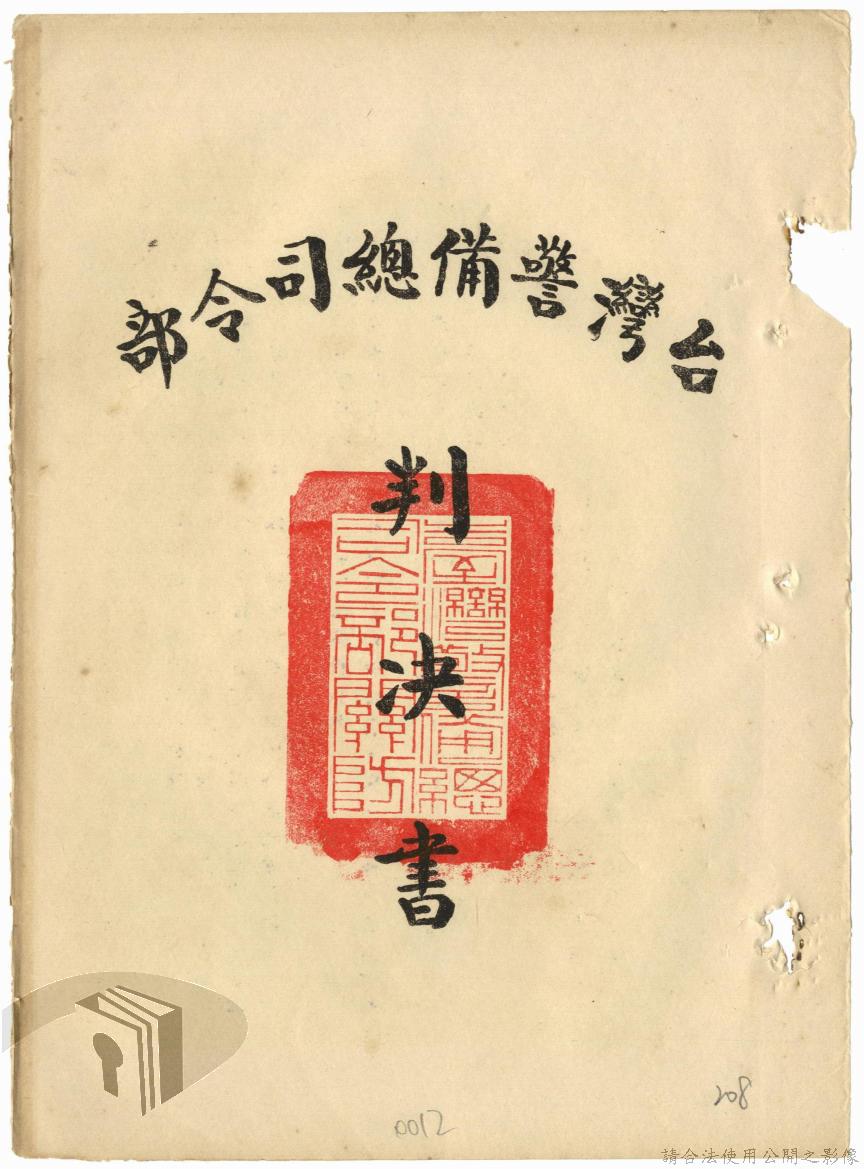 台灣警備總司令部
判決書
臺灣警備總
司令部關防
0012
208
請合法使用公開之影像